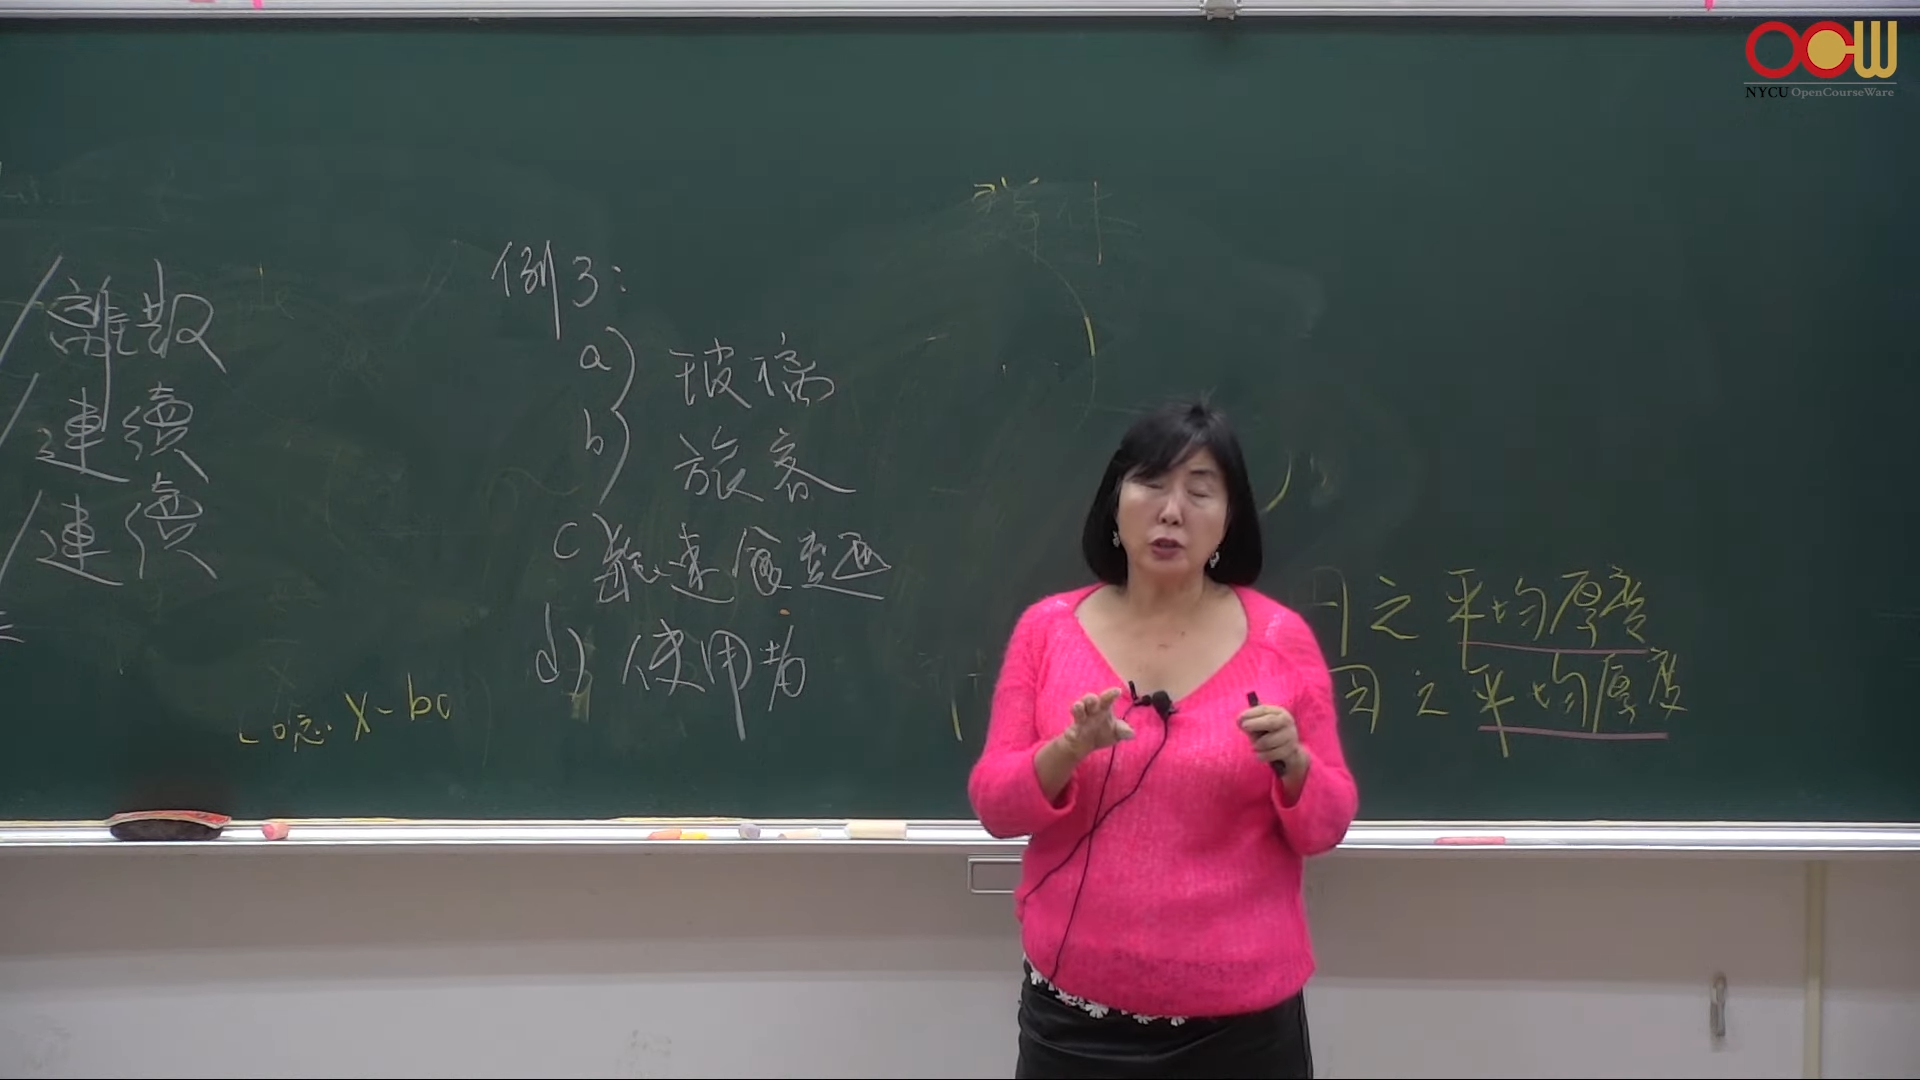 OCW
NYCU OpenCourseWare
/離散
/連續
/連續
例3:
a) 玻璃
b) 旅客
c)
d) 使用者
之平均厚度
之平均厚度